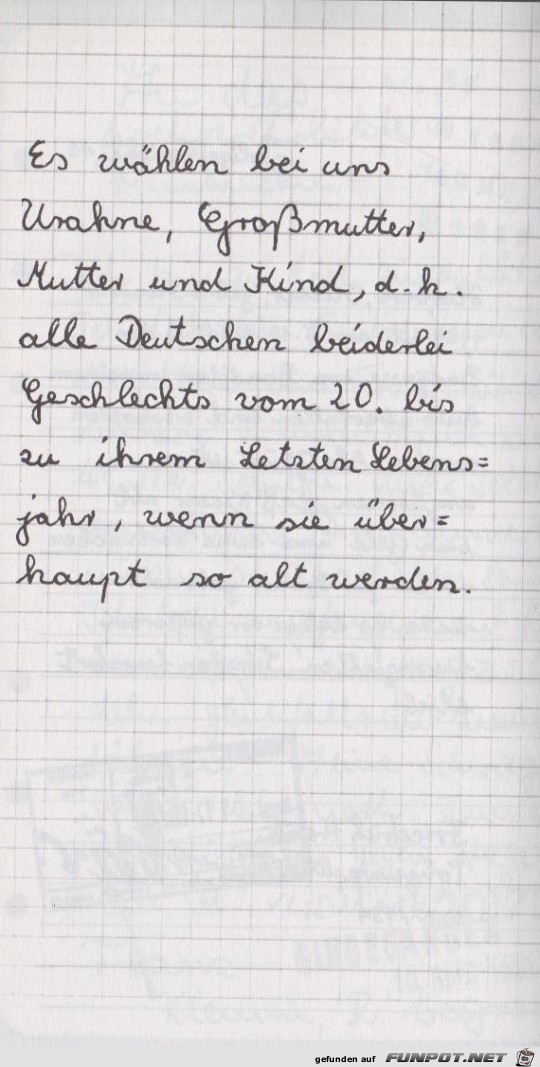 Es wählen bei uns
Urahne, Großmutter,
Mutter und Kind, d.h.
alle Deutschen beiderlei
Geschlechts vom 20. bis
zu ihrem letzten Lebens=
jahr, wenn sie über=
haupt so alt werden.
gefunden auf FUNPOT.NET